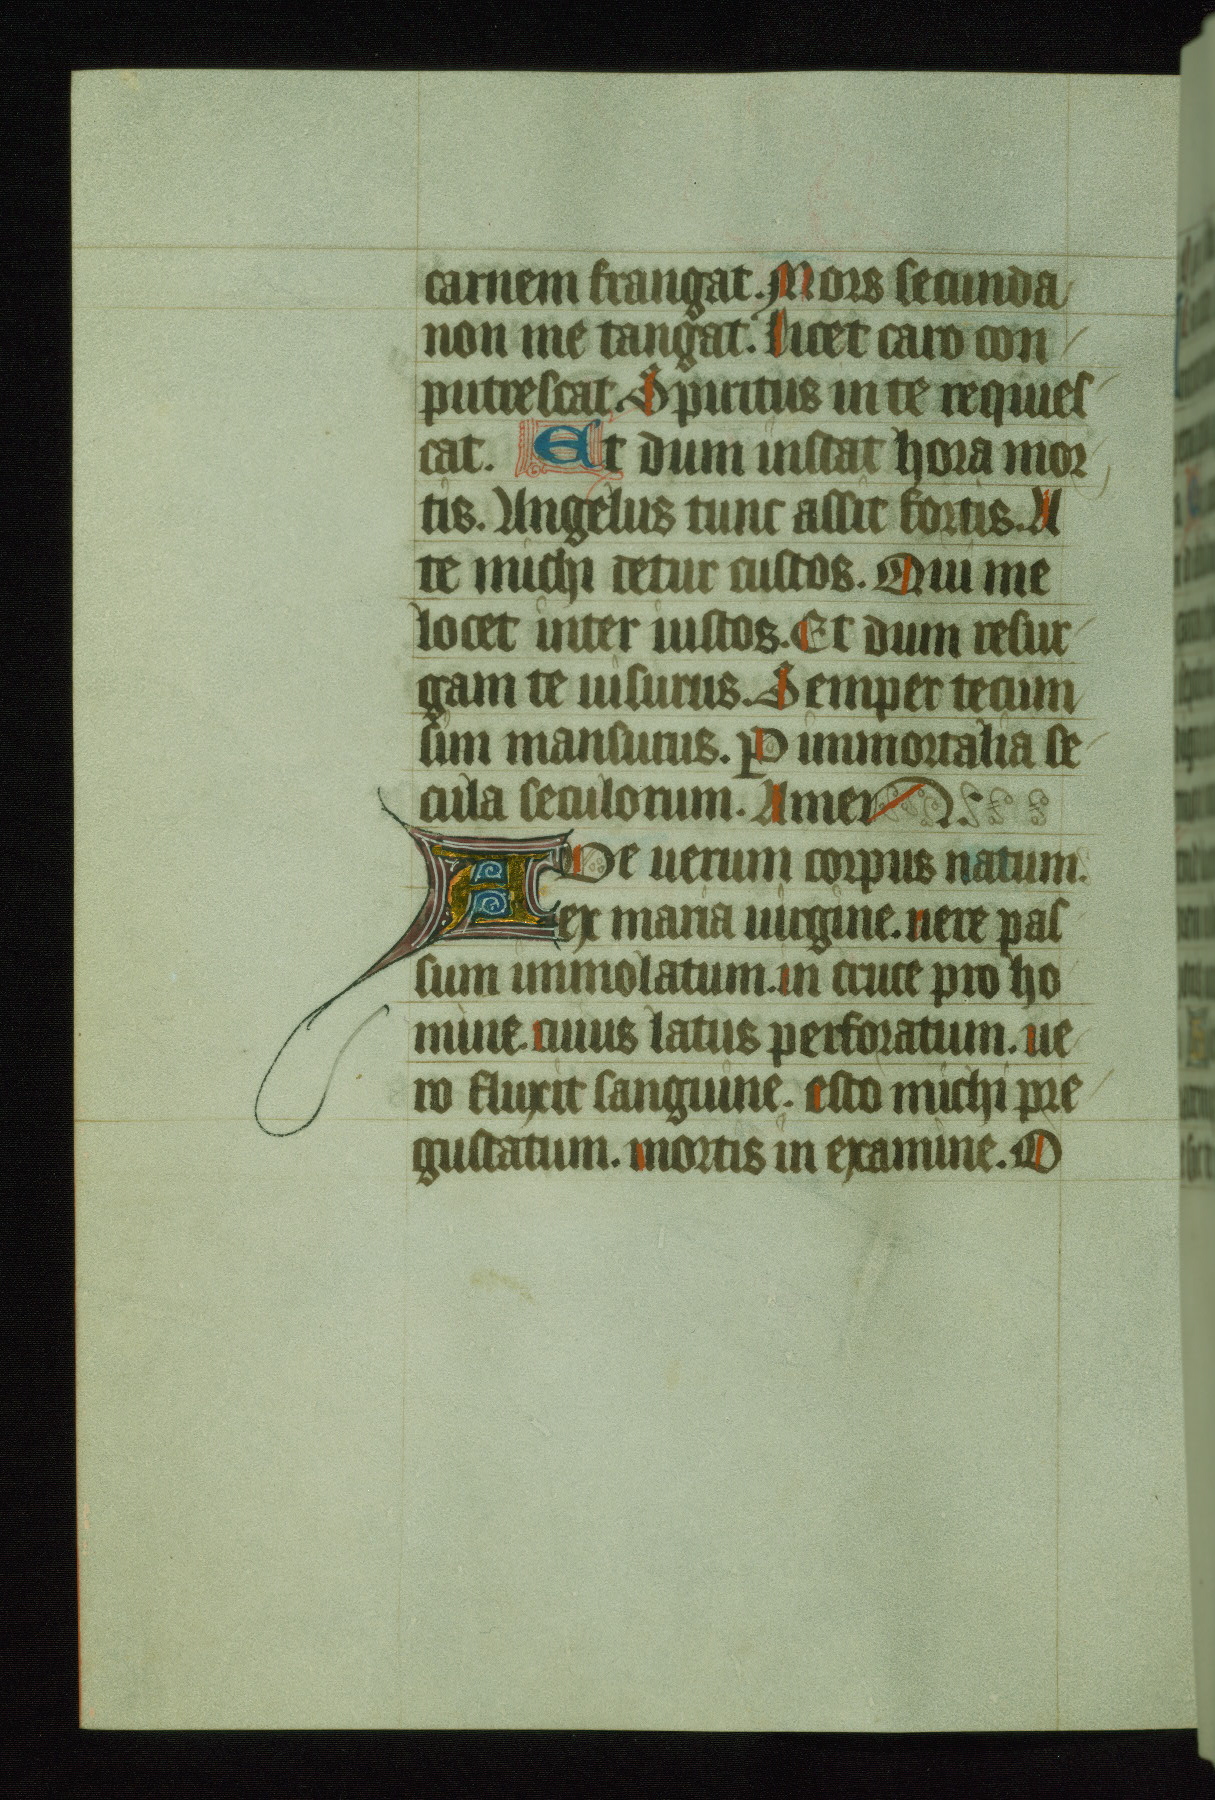 carnem frangat. Mors secunda
non me tangat. Licet caro con
putrescat. Spiritus in te requies
cat. Et dum instat hora mor
tis. Angelus tunc assit fortis. A
te michi detur custos. Qui me
locet inter iustos. Et dum resur
gam te uisurus. Semper tecum
sim mansurus. P immortalia se
cula seculorum. Amen.
AVe uerum corpus natum.
ex maria uirgine. uere pas
sum immolatum. in cruce pro ho
mine. cuius latus perforatum. ue
ro fluxit sanguine. esto michi pre
gustatum. mortis in examine. O